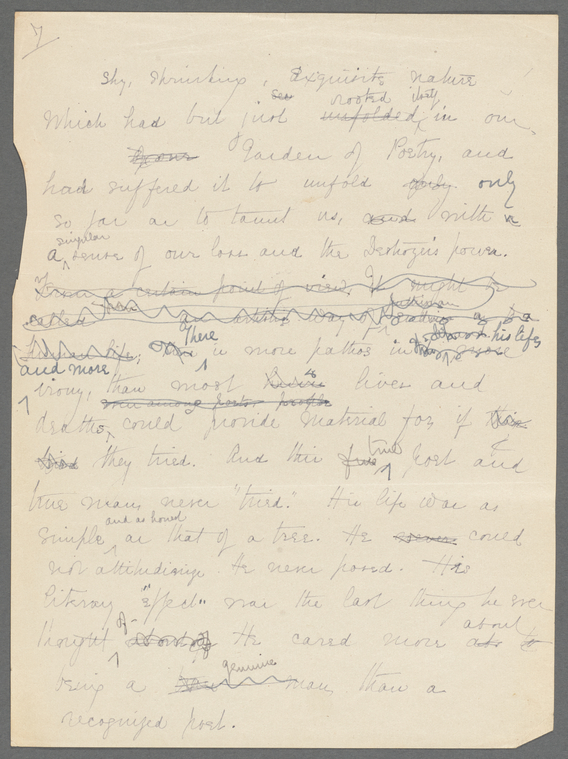 7
Shy, shrinking, exquisite nature
rooted itself
Which had but just unfolded in our
Garden of Poetry, and
had suffered it to unfold only only
so far as to taunt us, and with
singular
a sense of our loss and the Destroyer's power.
From a certain point of view, it might be
called an
There his life
is more pathos in
and more
irony, than most lives and
deaths, could provide material for if
they tried. And this fine true poet and
true man, never "tried." His life was as
and as honest
simple as that of a tree. He never could
not attitudinize. He never posed. His
literary "effect" was the last thing he ever
of about
thought about of He cared more
genuine
being a man than a
recognized poet.